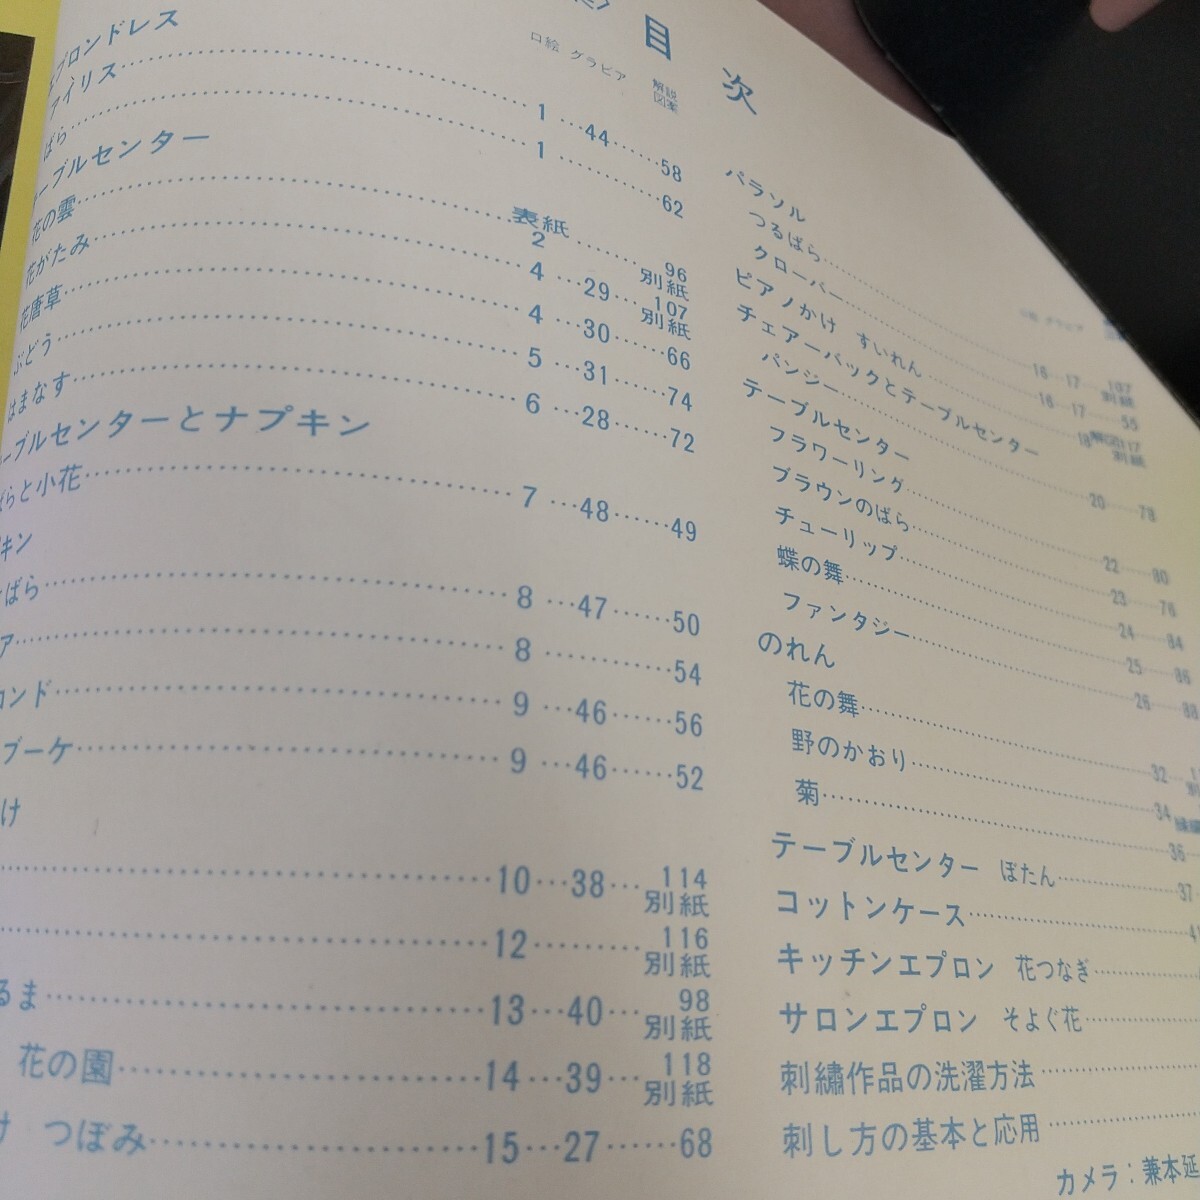 目次
口絵 グラビア 解説図案
プロンドレス
アイリス……1…44……58
ばら……1………62
ーブルセンター
花の雲……表紙2……96別紙
花がたみ……4…29…107別紙
花唐草……4…30……66
ぶどう……5…31……74
はまなす……6…28……72
ーブルセンターとナプキン
ばらと小花……7…48……49
キン
ばら……8…47……50
ア……8………54
ロンド……9…46……56
ブーケ……9…46……52
け
……10…38…114別紙
……12………116別紙
るま……13…40…98別紙
花の園……14…39…118別紙
け つぼみ……15…27……68
口絵 グラビア
パラソル
つるばら……16…17…107別紙
クローバー……16…17……55
ピアノかけ すいれん……18
チェアーバックとテーブルセンター
パンジー……20……78
テーブルセンター
フラワーリング……22……80
ブラウンのばら……23……76
チューリップ……24……84
蝶の舞……25……86
ファンタジー……26……88
のれん
花の舞……32
野のかおり……34
菊……36
テーブルセンター ぼたん……37
コットンケース……
キッチンエプロン 花つなぎ……
サロンエプロン そよぐ花……
刺繡作品の洗濯方法……
刺し方の基本と応用……
カメラ：兼本延